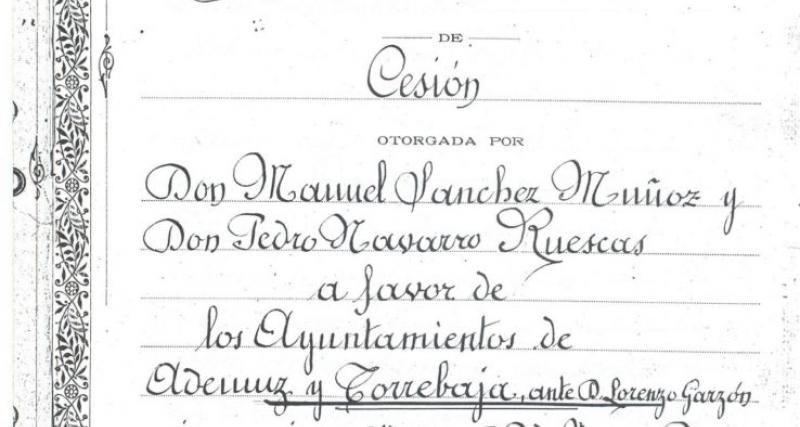 DE
Cesión
OTORGADA POR
Don Manuel Sanchez Muñoz y
Don Pedro Navarro Ruescas
a favor de
los Ayuntamientos de
Ademuz y Torrebaja, ante D. Lorenzo Garzón